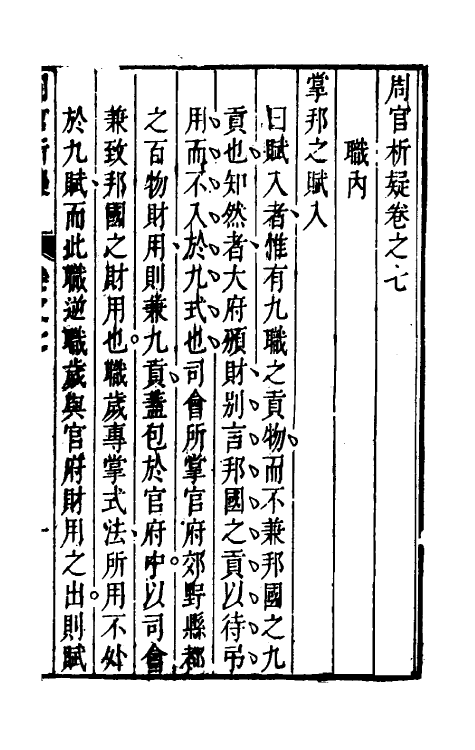 周官析疑卷之七
職內
掌邦之賦入
曰賦入者惟有九職之貢物而不兼邦國之九
貢也知然者大府頒財别言邦國之貢以待弔
用而不入於九式也司會所掌官府郊野縣都
之百物財用則兼九貢蓋包於官府中以司會
兼致邦國之財用也職歲專掌式法所用不處
於九賦而此職逆職歲與官府財用之出則賦
周官析疑 卷之七 一